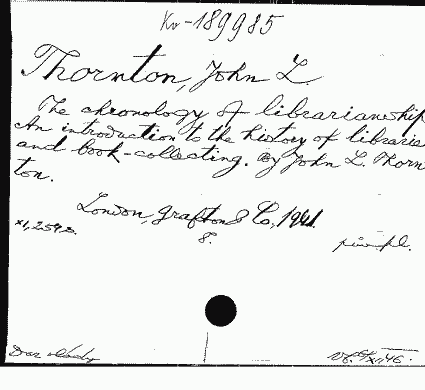 Kv-189985
Thornton, John L.
The chronology of librarianship
An introduction to the history of libraries
and book-collecting. By John L. Thorn-
ton.
London, Grafton & Co, 1941.
XI, 259 s.
8.